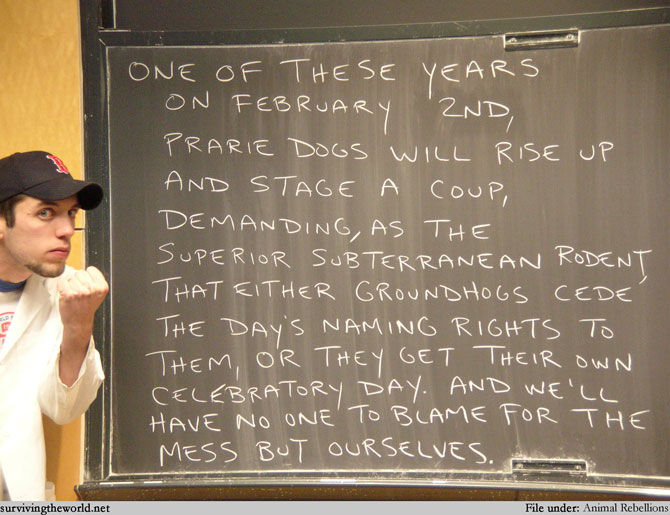 ONE OF THESE YEARS
ON FEBRUARY 2ND,
PRARIE DOGS WILL RISE UP
AND STAGE A COUP,
DEMANDING, AS THE
SUPERIOR SUBTERRANEAN RODENT,
THAT EITHER GROUNDHOGS CEDE
THE DAY'S NAMING RIGHTS TO
THEM, OR THEY GET THEIR OWN
CELEBRATORY DAY. AND WE'LL
HAVE NO ONE TO BLAME FOR THE
MESS BUT OURSELVES.
B
survivingtheworld.net
File under: Animal Rebellions